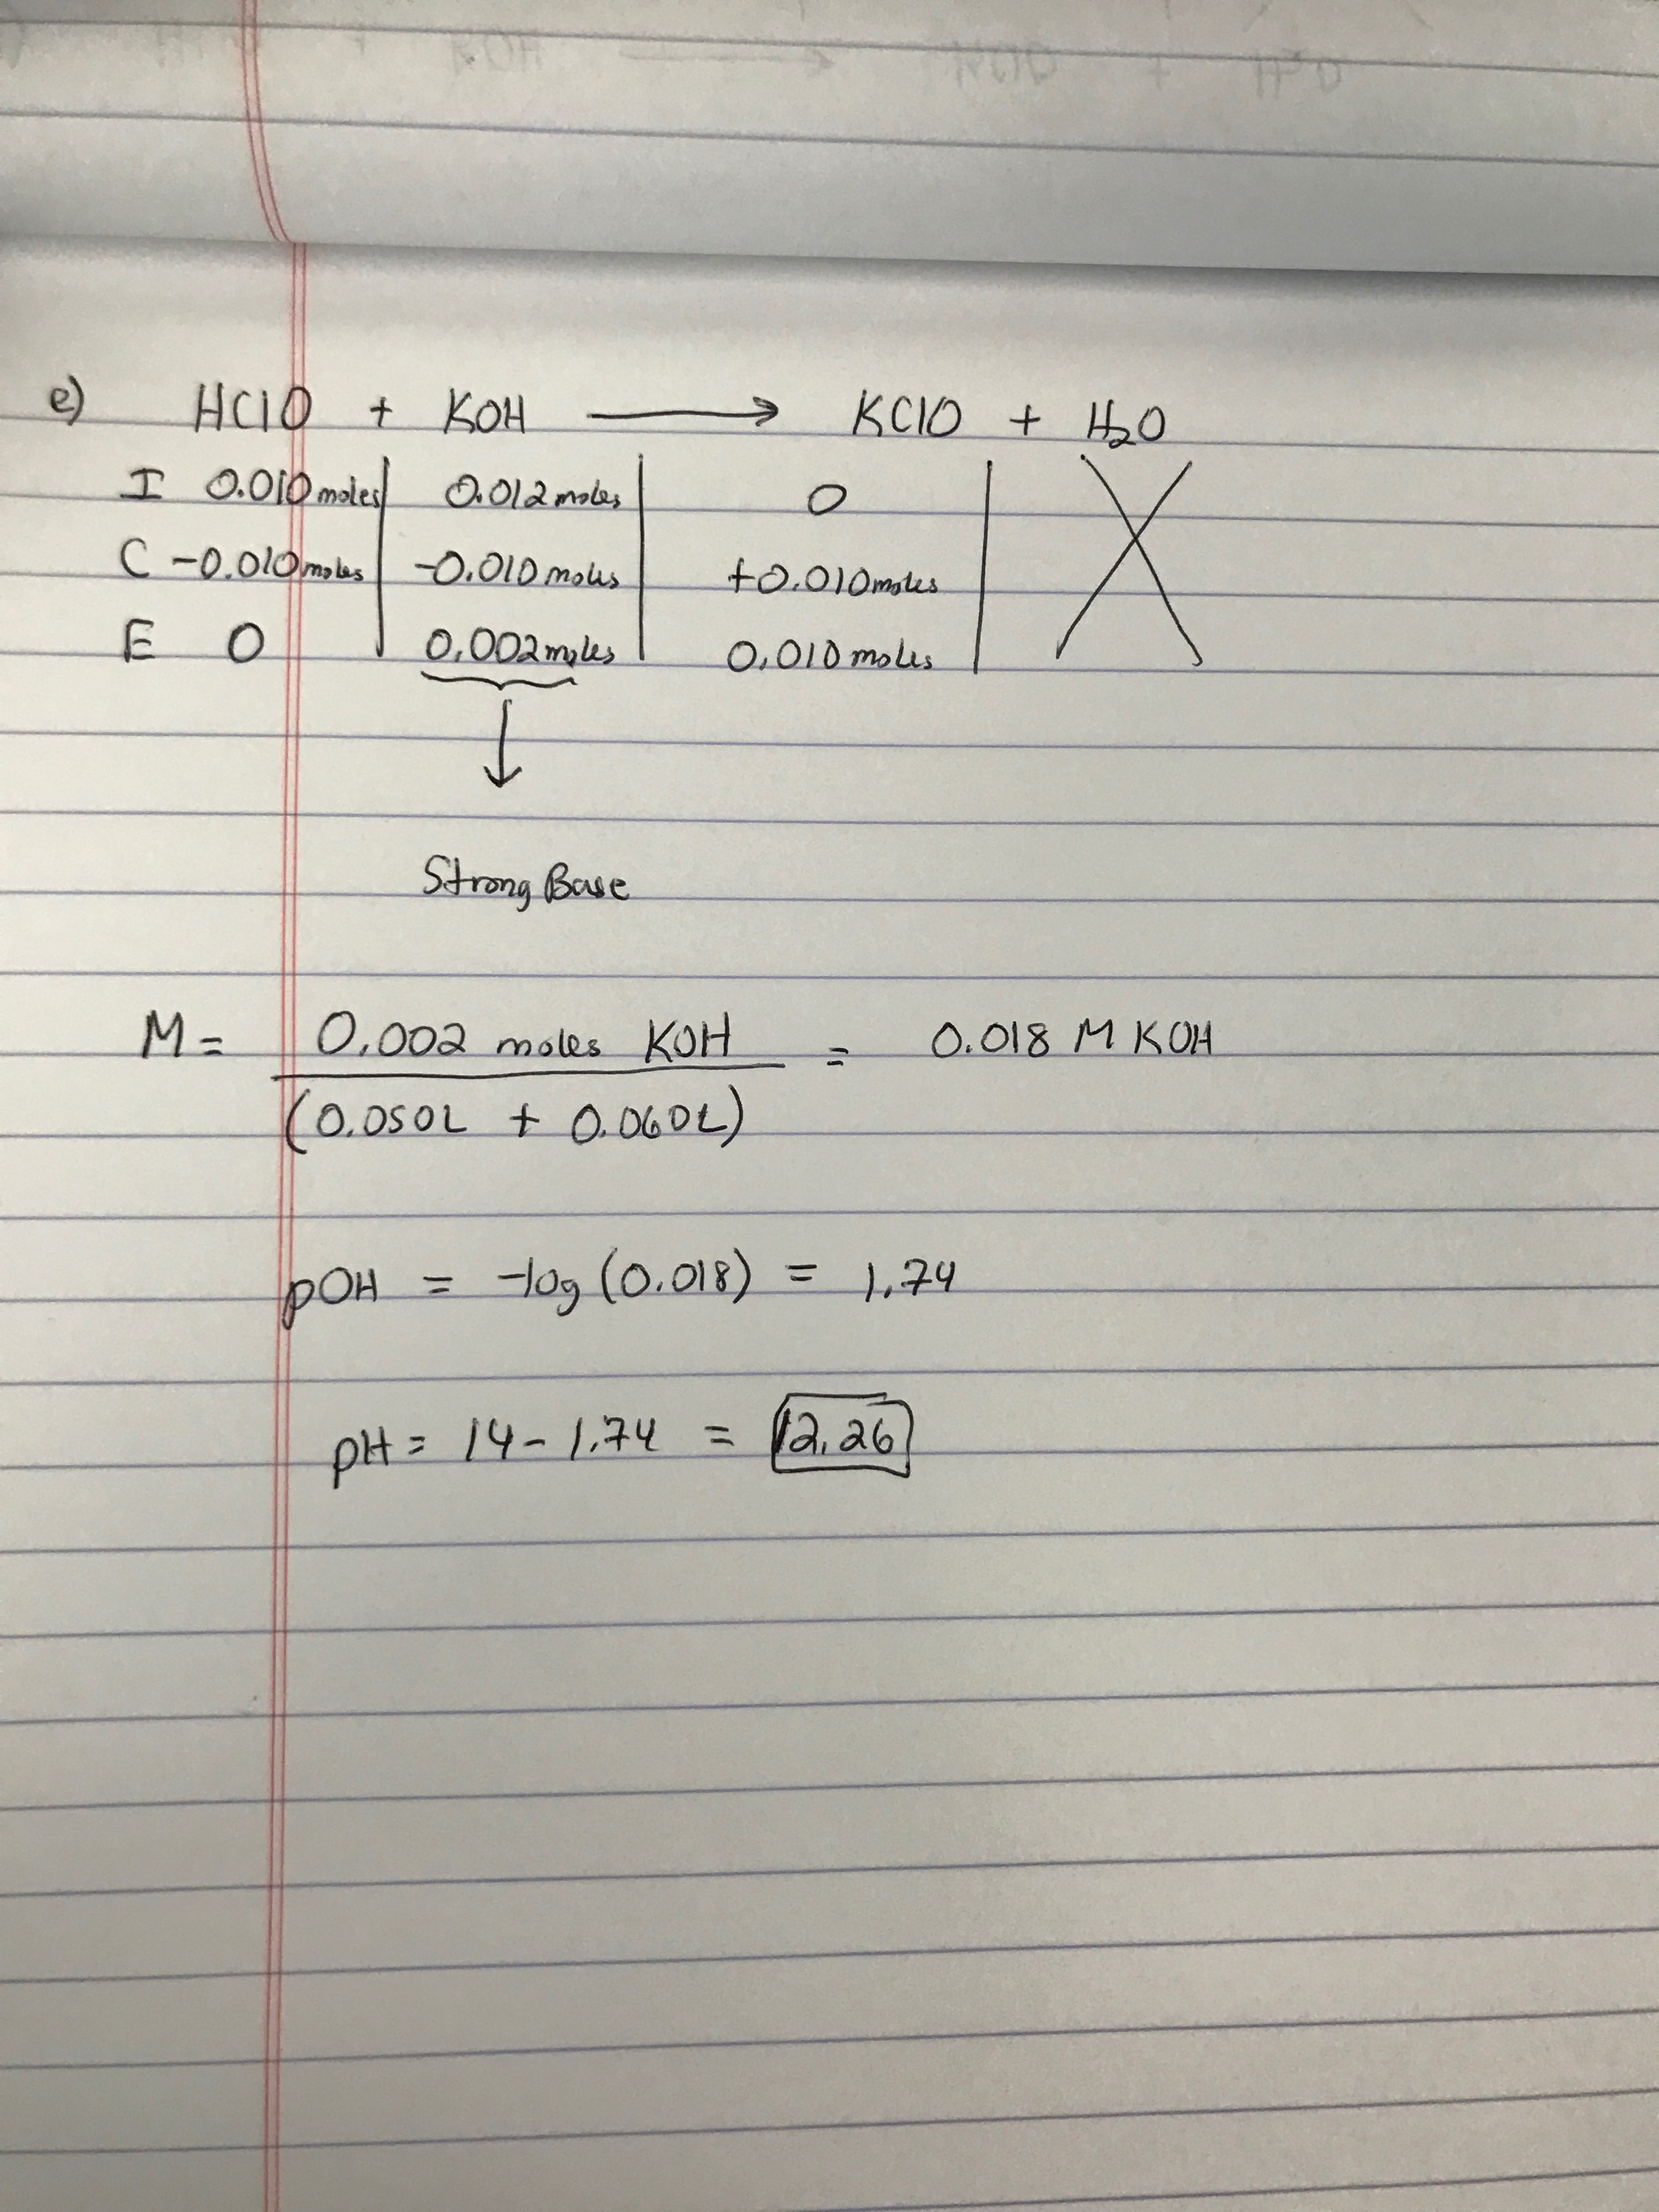 e) HClO + KOH ⟶ KClO + H₂O
I 0.010 moles | 0.012 moles | 0 |
C -0.010 moles | -0.010 moles | +0.010 moles |
E 0 | 0.002 moles | 0.010 moles |
Strong Base
M = 0.002 moles KOH / (0.050L + 0.060L) = 0.018 M KOH
pOH = -log (0.018) = 1.74
pH = 14 - 1.74 = 12.26